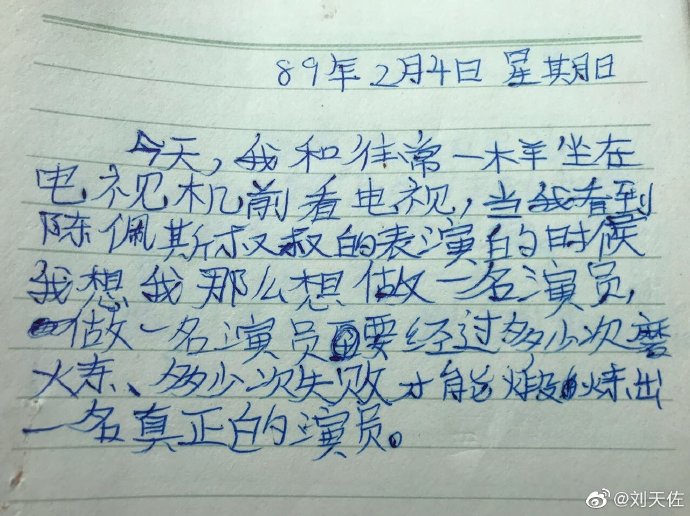 89年2月4日 星期日
今天,我和往常一样坐在
电视机前看电视,当我看到
陈佩斯叔叔的表演的时候
我想我那么想做一名演员,
做一名演员要经过多少次磨
炼、多少次失败才能煅炼出
一名真正的演员。
@刘天佐